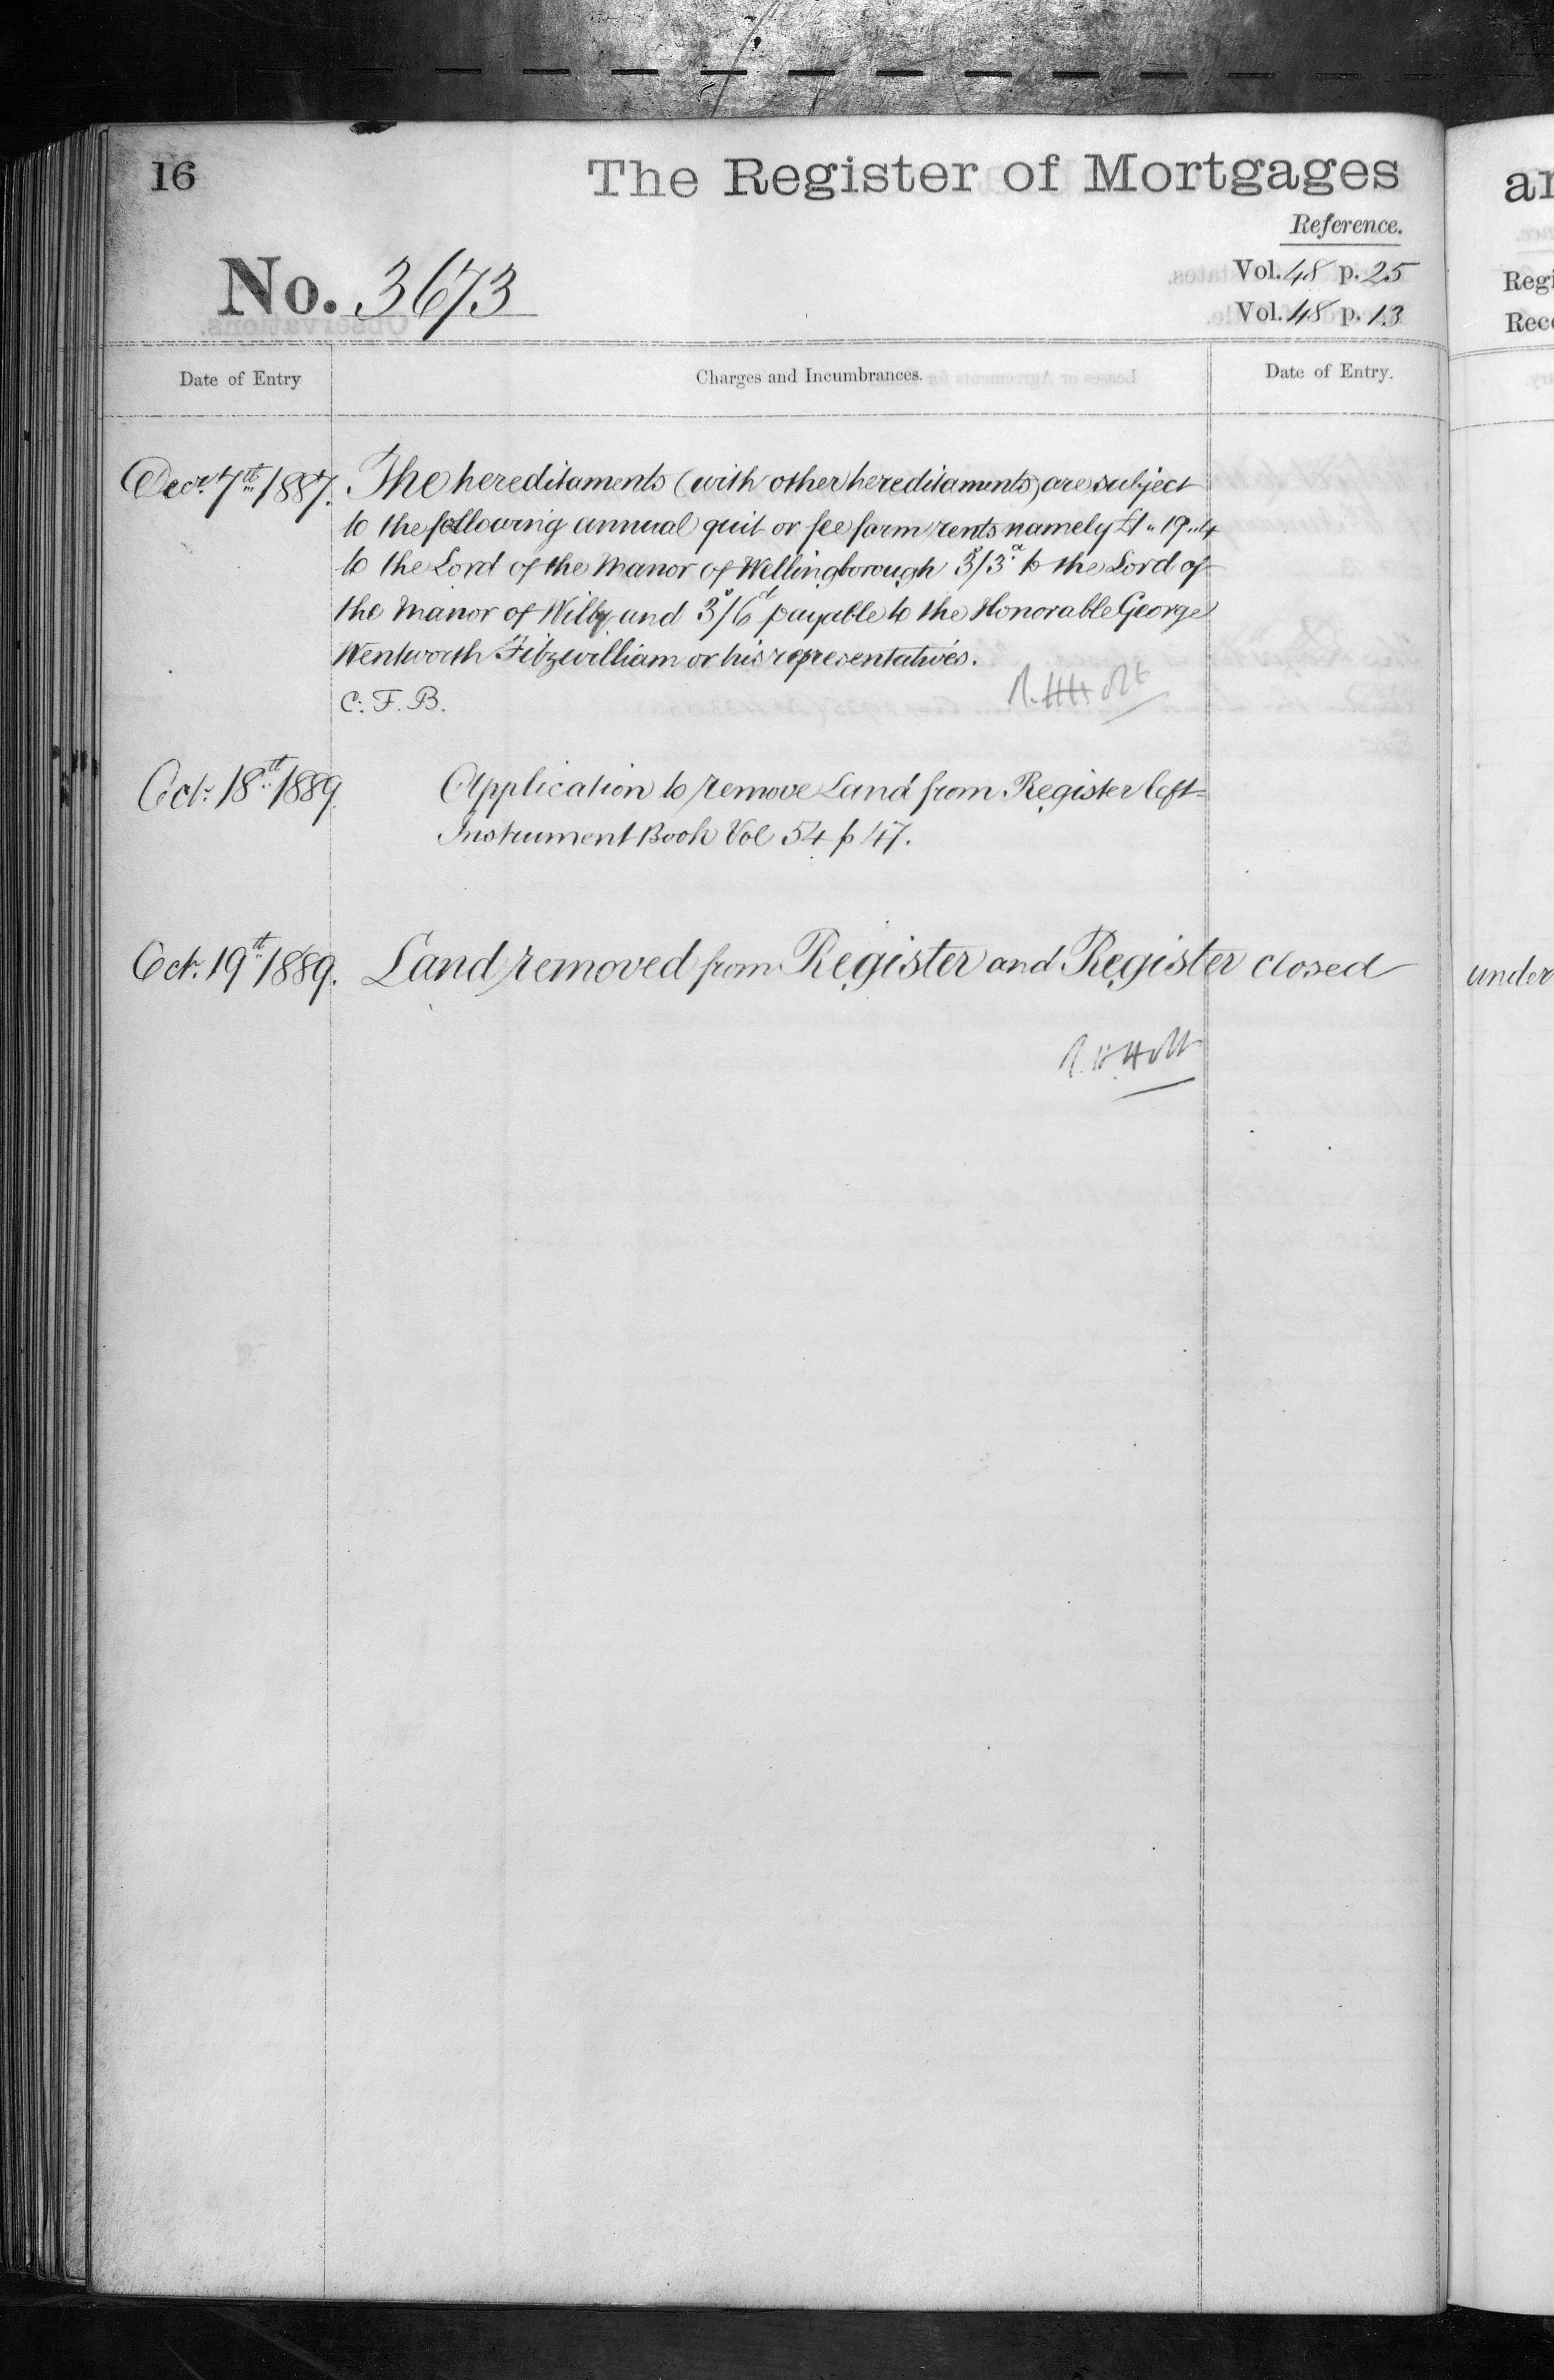 16
The Register of Mortgages
Reference.
No. 3673
Vol. 48 p. 25
Vol. 48 p. 13
Date of Entry
Charges and Incumbrances.
Date of Entry.
Decr. 7th 1887. The hereditaments (with other hereditaments) are subject
to the following annual quit or fee farm rents namely £1 " 19 " 4
to the Lord of the Manor of Wellingborough 3s/3d to the Lord of
the Manor of Wilby and 3s/6d payable to the Honorable George
Wentworth Fitzwilliam or his representatives.
C. F. B.
R. H. Holt
Oct. 18th 1889 Application to remove Land from Register left
Instrument Book Vol 54 p 47.
Oct. 19th 1889. Land removed from Register and Register closed
R. H. Holt
Regi
Rec
under